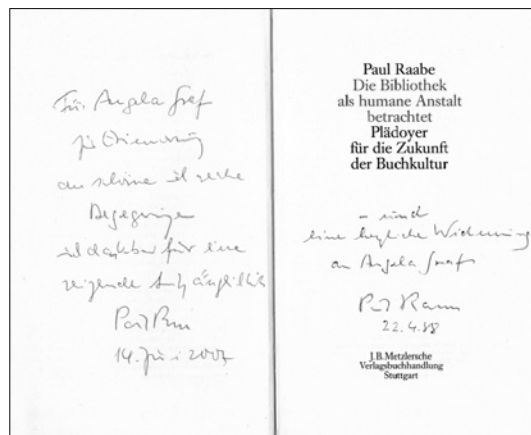 Für Angela Graf
zur Erinnerung
an schöne und
Begegnungen
und dankbar für eine
Anhänglichkeit
Paul Raabe
14. Juni 2007
Paul Raabe
Die Bibliothek
als humane Anstalt
betrachtet
Plädoyer
für die Zukunft
der Buchkultur
– und
eine herzliche Widmung
an Angela Graf
Paul Raabe
22.4.88
J.B. Metzlersche
Verlagsbuchhandlung
Stuttgart